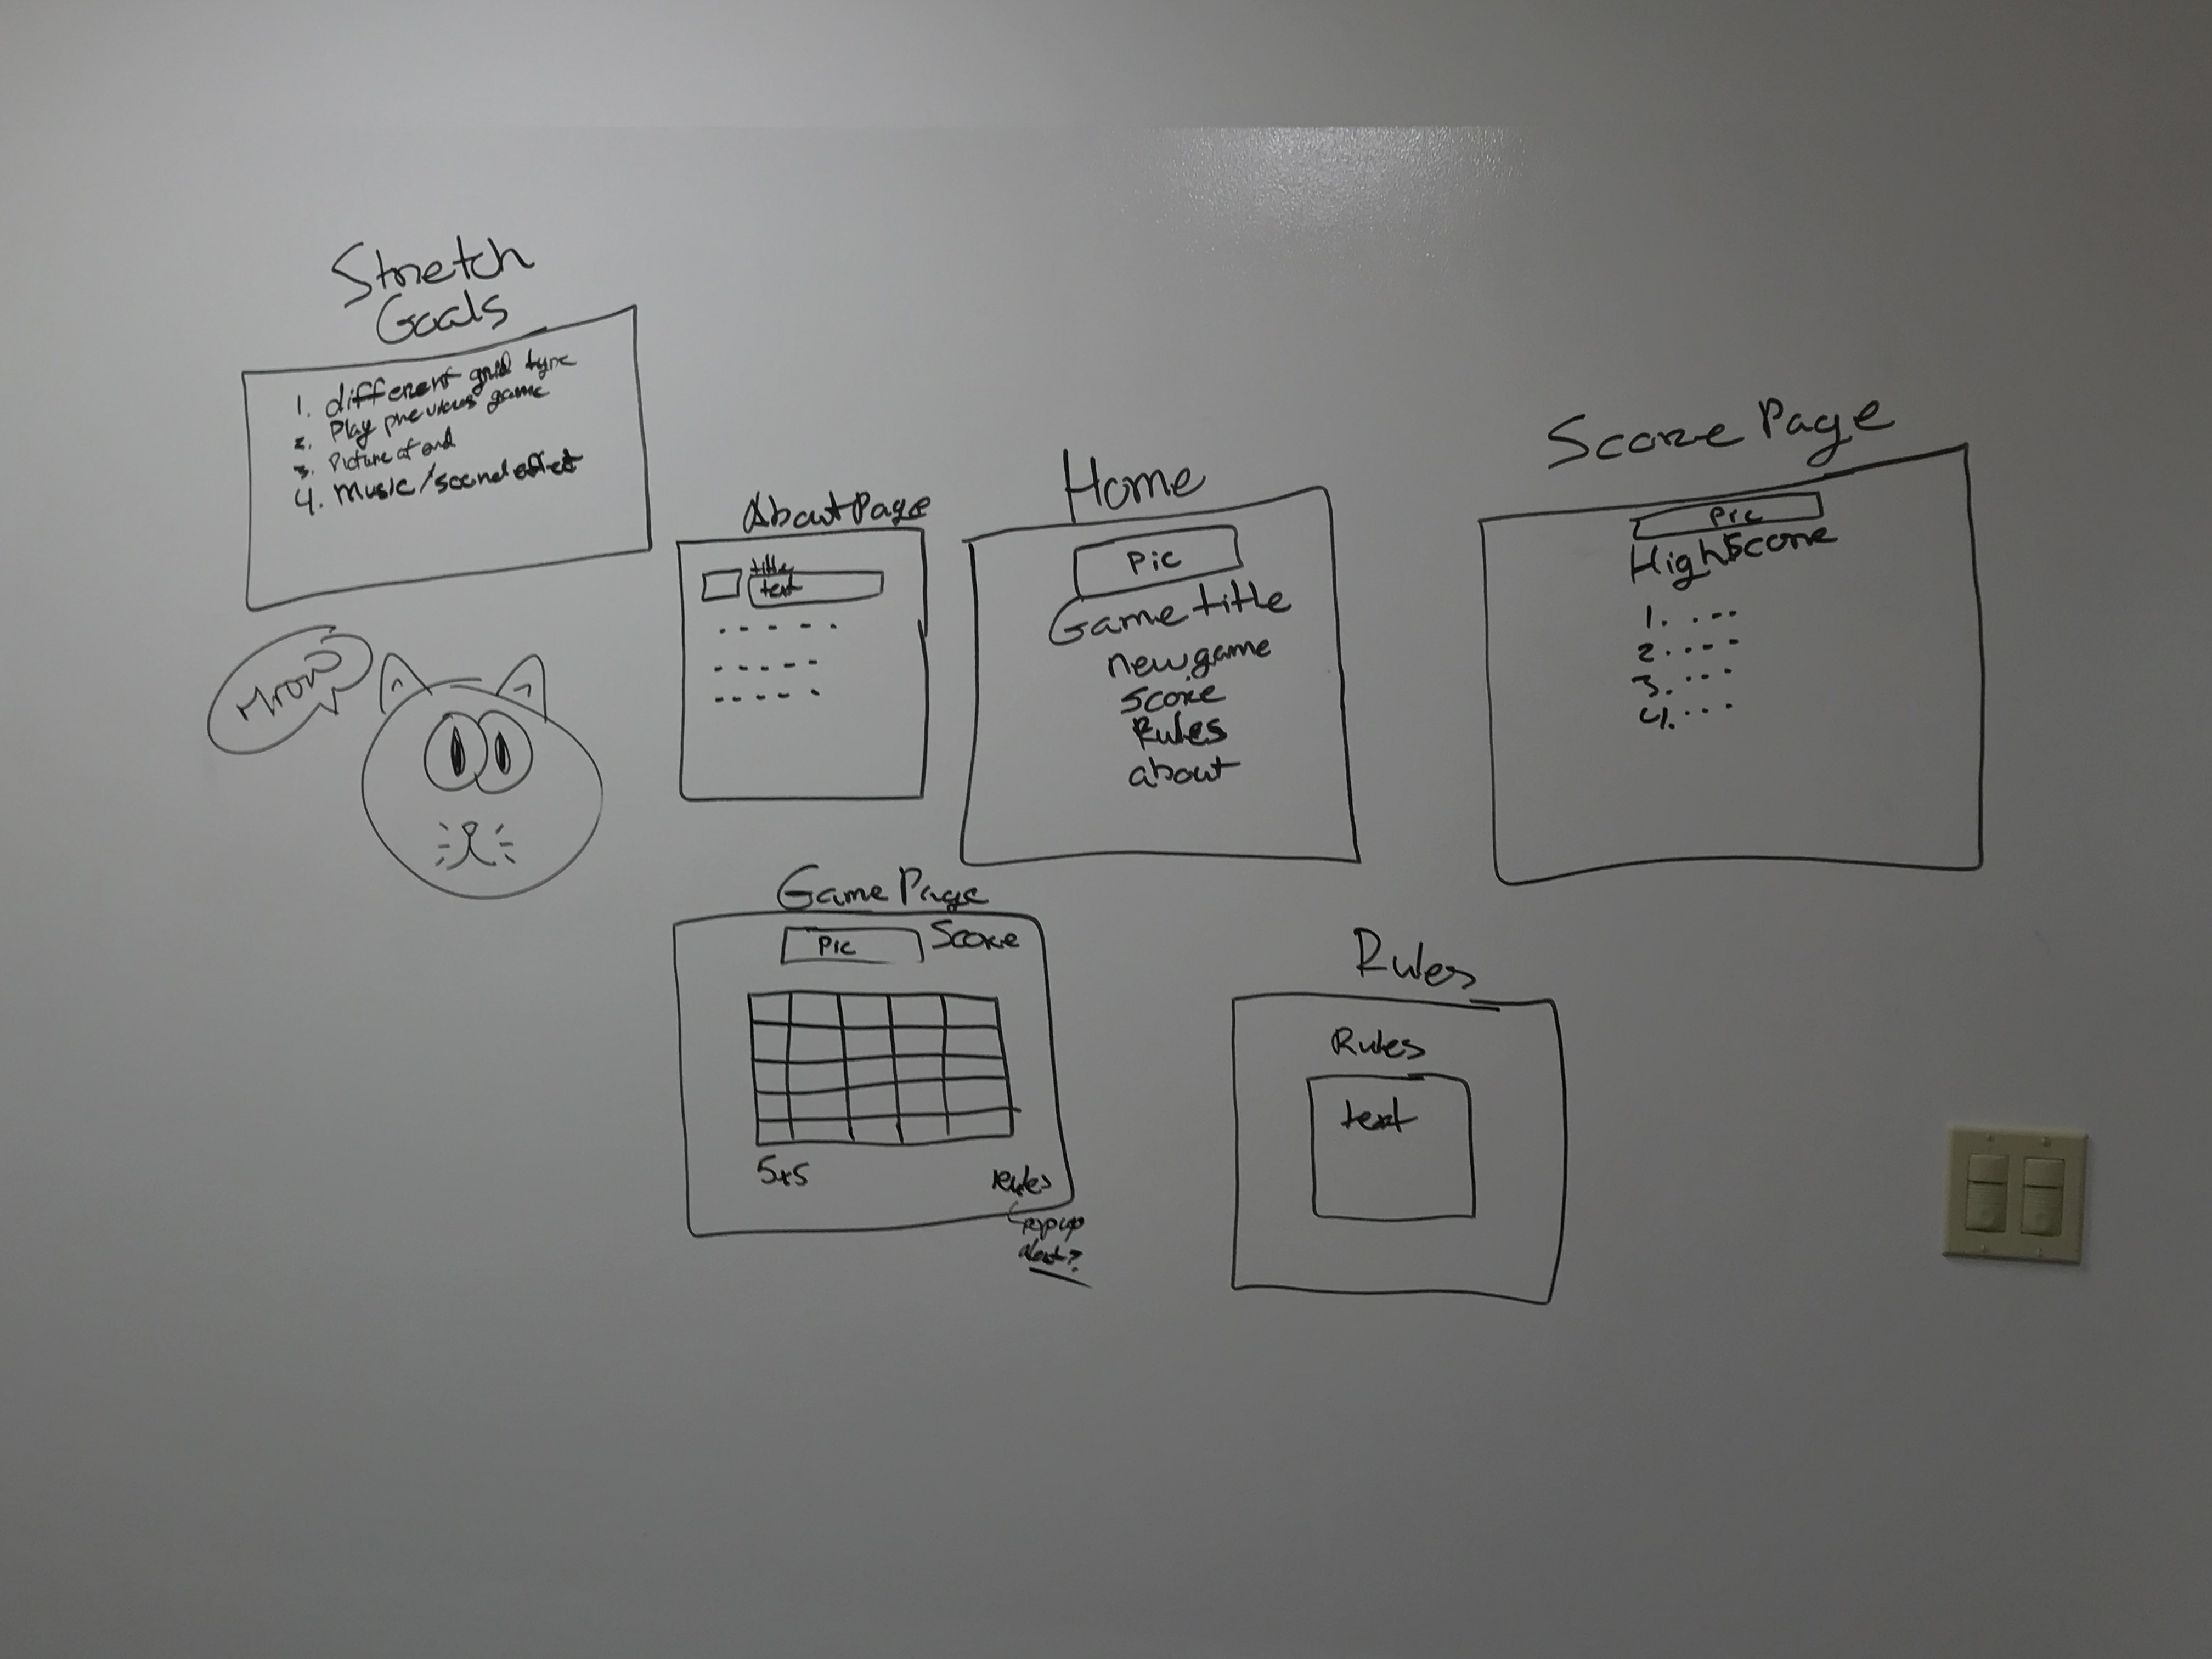 Stretch
Goals
1. different grid type
2. Play previous game
3. Picture at end
4. music/sound effect
Mrow
About Page
title
text
Home
Pic
Game title
new game
score
Rules
about
Score Page
Pic
High Score
1.
2.
3.
4.
Game Page
Pic
Score
5x5
rules
popup
alert?
Rules
Rules
text